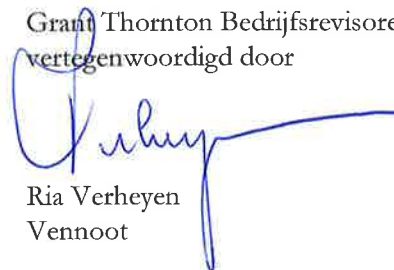 Grant Thornton Bedrijfsrevisore
vertegenwoordigd door
Ria Verheyen
Vennoot